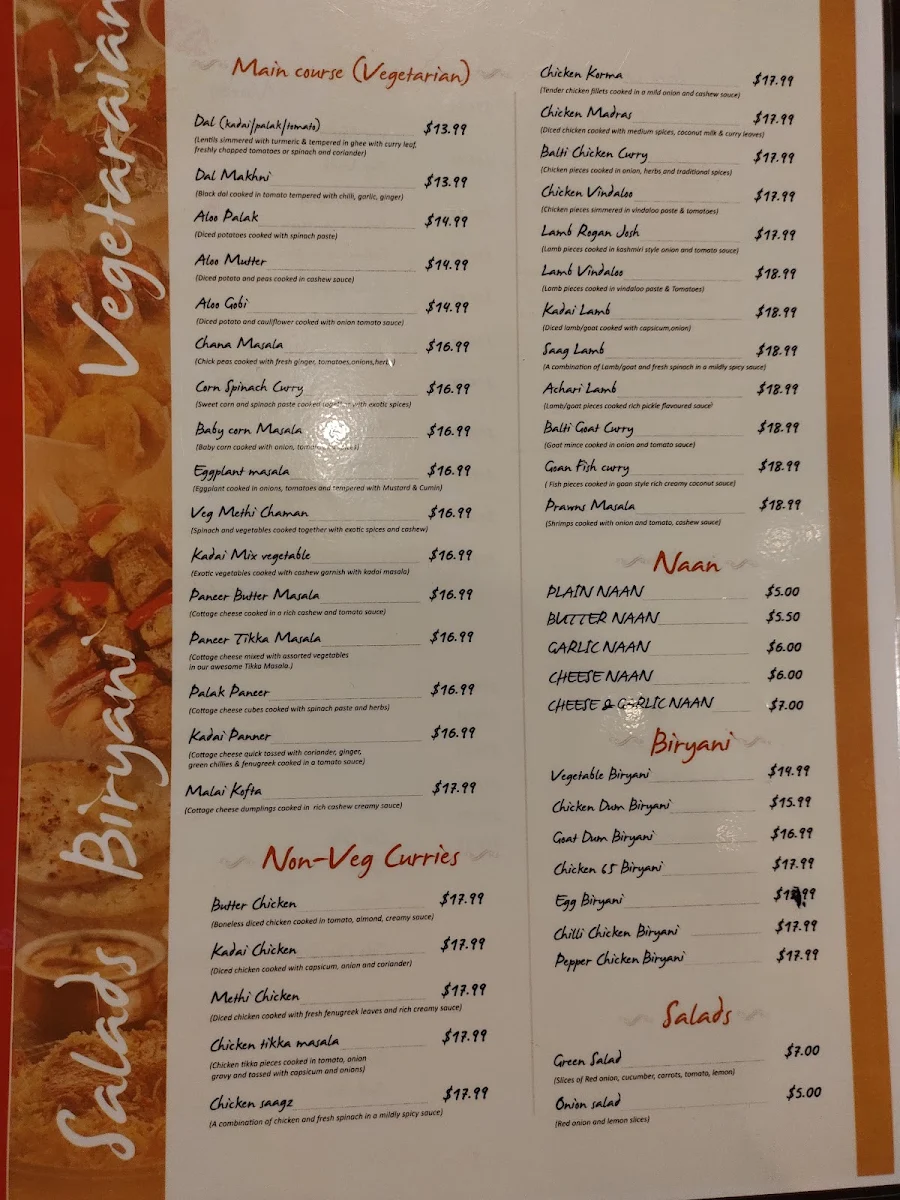 Vegetaraian
Biryani
Salads
Main course (Vegetarian)
Dal (kadai/palak/tomato) $13.99
(Lentils simmered with turmeric & tempered in ghee with curry leaf,
freshly chopped tomatoes or spinach and coriander)
Dal Makhni $13.99
(Black dal cooked in tomato tempered with chilli, garlic, ginger)
Aloo Palak $14.99
(Diced potatoes cooked with spinach paste)
Aloo Mutter $14.99
(Diced potato and peas cooked in cashew sauce)
Aloo Gobi $14.99
(Diced potato and cauliflower cooked with onion tomato sauce)
Chana Masala $16.99
(Chick peas cooked with fresh ginger, tomatoes,onions,herbs)
Corn Spinach Curry $16.99
(Sweet corn and spinach paste cooked together with exotic spices)
Baby corn Masala $16.99
(Baby corn cooked with onion,
Eggplant masala $16.99
(Eggplant cooked in onions, tomatoes and tempered with Mustard & Cumin)
Veg Methi Chaman $16.99
(Spinach and vegetables cooked together with exotic spices and cashew)
Kadai Mix vegetable $16.99
(Exotic vegetables cooked with cashew garnish with kadai masala)
Paneer Butter Masala $16.99
(Cottage cheese cooked in a rich cashew and tomato sauce)
Paneer Tikka Masala $16.99
(Cottage cheese mixed with assorted vegetables
in our awesome Tikka Masala.)
Palak Paneer $16.99
(Cottage cheese cubes cooked with spinach paste and herbs)
Kadai Panner $16.99
(Cottage cheese quick tossed with coriander, ginger,
green chillies & fenugreek cooked in a tomato sauce)
Malai Kofta $17.99
(Cottage cheese dumplings cooked in rich cashew creamy sauce)
Non-Veg Curries
Butter Chicken $17.99
(Boneless diced chicken cooked in tomato, almond, creamy sauce)
Kadai Chicken $17.99
(Diced chicken cooked with capsicum, onion and coriander)
Methi Chicken $17.99
(Diced chicken cooked with fresh fenugreek leaves and rich creamy sauce)
Chicken tikka masala $17.99
(Chicken tikka pieces cooked in tomato, onion
gravy and tossed with capsicum and onions)
Chicken saagz $17.99
(A combination of chicken and fresh spinach in a mildly spicy sauce)
Chicken Korma $17.99
(Tender chicken fillets cooked in a mild onion and cashew sauce)
Chicken Madras $17.99
(Diced chicken cooked with medium spices, coconut milk & curry leaves)
Balti Chicken Curry $17.99
(Chicken pieces cooked in onion, herbs and traditional spices)
Chicken Vindaloo $17.99
(Chicken pieces simmered in vindaloo paste & tomatoes)
Lamb Rogan Josh $17.99
(Lamb pieces cooked in kashmiri style onion and tomato sauce)
Lamb Vindaloo $18.99
(Lamb pieces cooked in vindaloo paste & Tomatoes)
Kadai Lamb $18.99
(Diced lamb/goat cooked with capsicum,onion)
Saag Lamb $18.99
(A combination of Lamb/goat and fresh spinach in a mildly spicy sauce)
Achari Lamb $18.99
(Lamb/goat pieces cooked rich pickle flavoured sauce)
Balti Goat Curry $18.99
(Goat mince cooked in onion and tomato sauce)
Goan Fish curry $18.99
( Fish pieces cooked in goan style rich creamy coconut sauce)
Prawns Masala $18.99
(Shrimps cooked with onion and tomato, cashew sauce)
Naan
PLAIN NAAN $5.00
BUTTER NAAN $5.50
GARLIC NAAN $6.00
CHEESE NAAN $6.00
CHEESE & GARLIC NAAN $7.00
Biryani
Vegetable Biryani $14.99
Chicken Dum Biryani $15.99
Goat Dum Biryani $16.99
Chicken 65 Biryani $17.99
Egg Biryani
Chilli Chicken Biryani $17.99
Pepper Chicken Biryani $17.99
Salads
Green Salad $7.00
(Slices of Red onion, cucumber, carrots, tomato, lemon)
Onion salad $5.00
(Red onion and lemon slices)